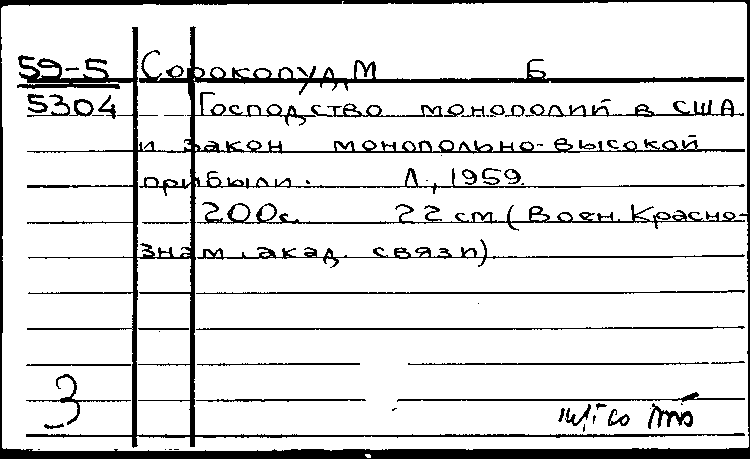 59-5 Сорокопуд, М Б
5304 Господство монополий в США
и закон монопольно-высокой
прибыли. Л., 1959.
200с. 22 см (Воен. Красно-
знам. акад. связи).
3